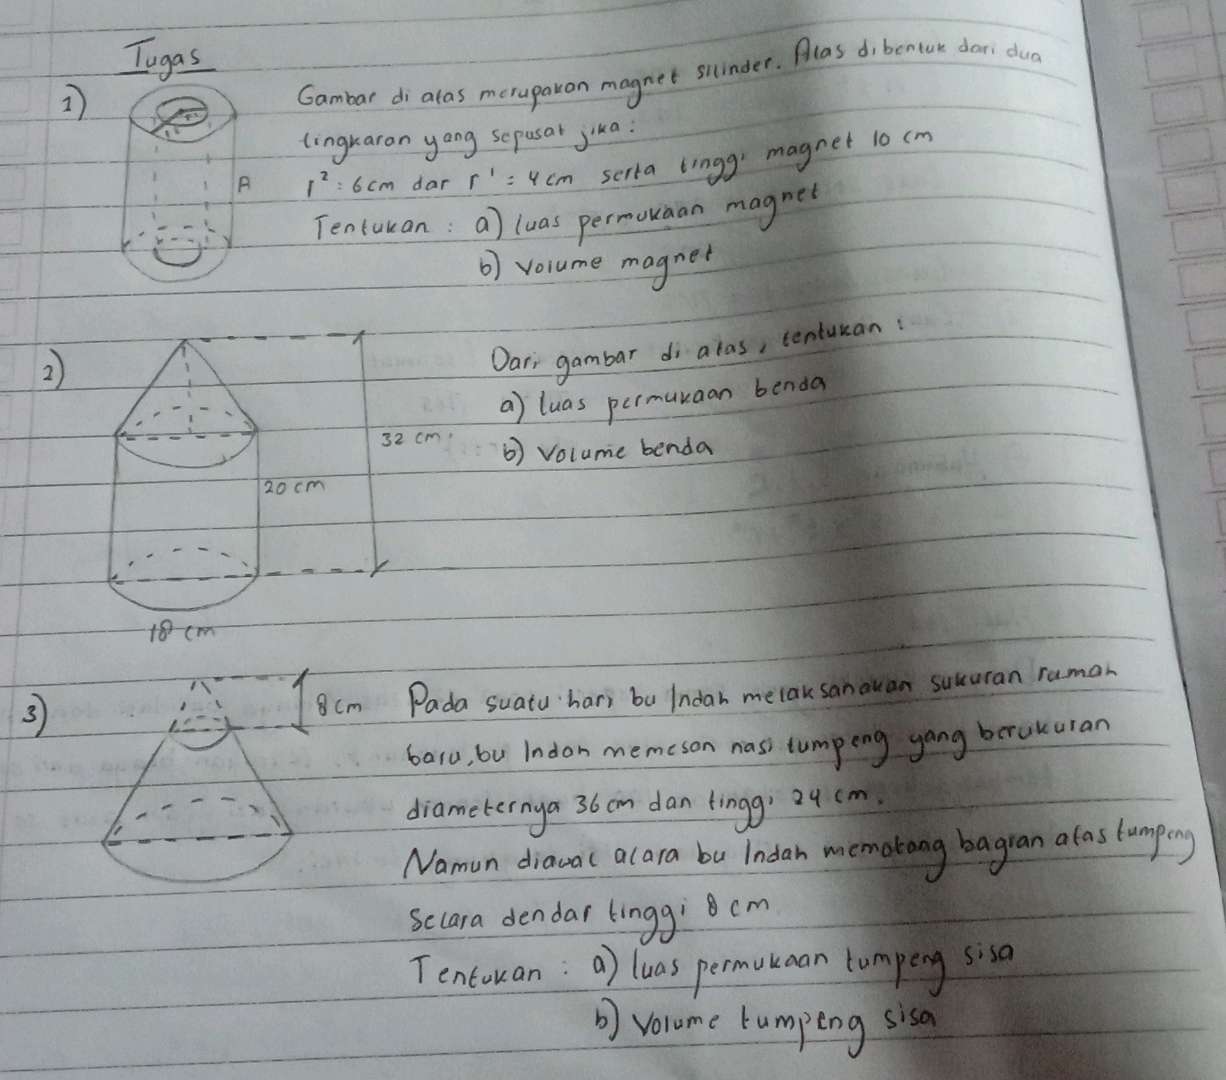 Tugas
1) Gambar di atas merupakan magnet silinder. Alas dibentuk dari dua
lingkaran yang sepusat jika:
A r² : 6cm dar r' = 4cm serta tinggi magnet 10 cm
Tentukan : a) luas permukaan magnet
b) Volume magnet
2) Dari gambar di atas, tentukan :
a) luas permukaan benda
32 cm b) Volume benda
20 cm
18 cm
3) 8 cm Pada suatu hari bu Indah melaksanakan sukuran rumah
baru, bu Indah memesan nasi tumpeng yang berukuran
diameternya 36 cm dan tinggi 24 cm.
Namun diawal acara bu Indah memotong bagian atas tumpeng
Secara dendar tinggi 8 cm
Tentukan : a) luas permukaan tumpeng sisa
b) Volume tumpeng sisa